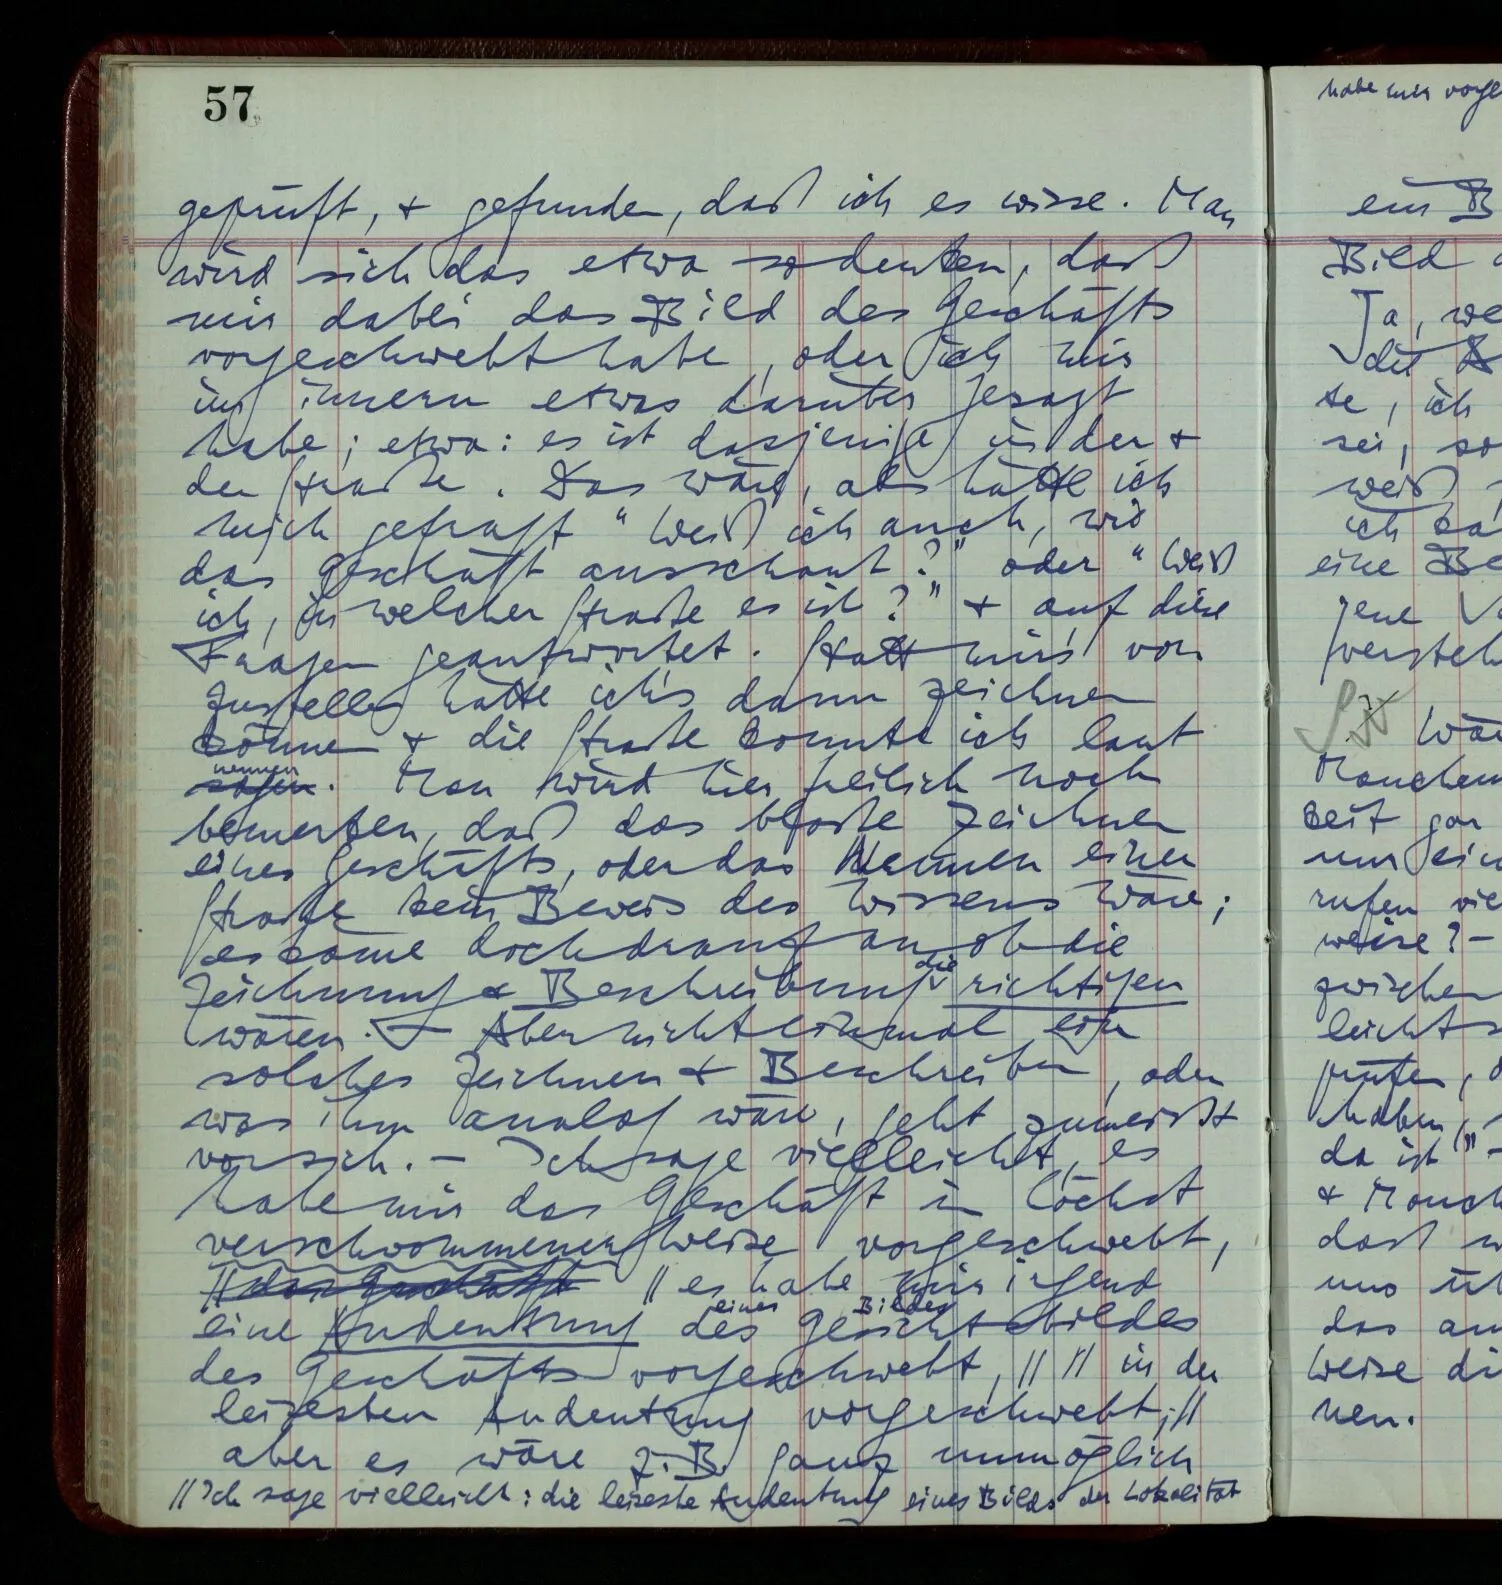 57
geprüft, + gefunden, daß ich es wisse. Man
wird sich das etwa so denken, daß
mir dabei das Bild des Geschäfts
vorgeschwebt habe, oder ich mir
im innern etwas darüber gesagt
habe; etwa: es ist dasjenige in der +
der Straße. Das wäre, als hätte ich
mich gefragt "Weiß ich auch, wie
das Geschäft ausschaut?" oder "Weiß
ich, in welcher Straße es ist?" + auf diese
Fragen geantwortet. Statt mir's vor
zustellen hätte ich's dann zeichnen
können + die Straße konnte ich laut
nennen
sagen. Man wird hier freilich noch
bemerken, daß das bloße Zeichnen
eines Geschäfts, oder das Nennen einer
Straße kein Beweis des Wissens wäre;
es käme doch drauf an ob die
die
Zeichnung & Beschreibung richtigen
wären. – Aber nicht einmal ein
solches Zeichnen + Beschreiben, oder
was ihm analog wäre, geht zumeist
vor sich. – Ich sage vielleicht, es
habe mir das Geschäft in höchst
verschwommener Weise vorgeschwebt,
// das Geschäft // es habe mir irgend
eines Bildes
eine Andeutung des Gesichtsbildes
des Geschäfts vorgeschwebt, // // in der
leisesten Andeutung vorgeschwebt; //
aber es wäre z.B. ganz unmöglich
// Ich sage vielleicht: die leiseste Andeutung eines Bildes der Lokalität
habe mir
ein B
Bild
Ja, we
die
te, ich
sei, so
weiß
ich
eine Be
jene
versteh
Wä
Manchem
keit gar
nur ein
rufen vie
weise? –
zwischen
leicht
prüfen,
haben,
da ist"
+ Manch
daß w
uns üb
das an
Weise di
nen.